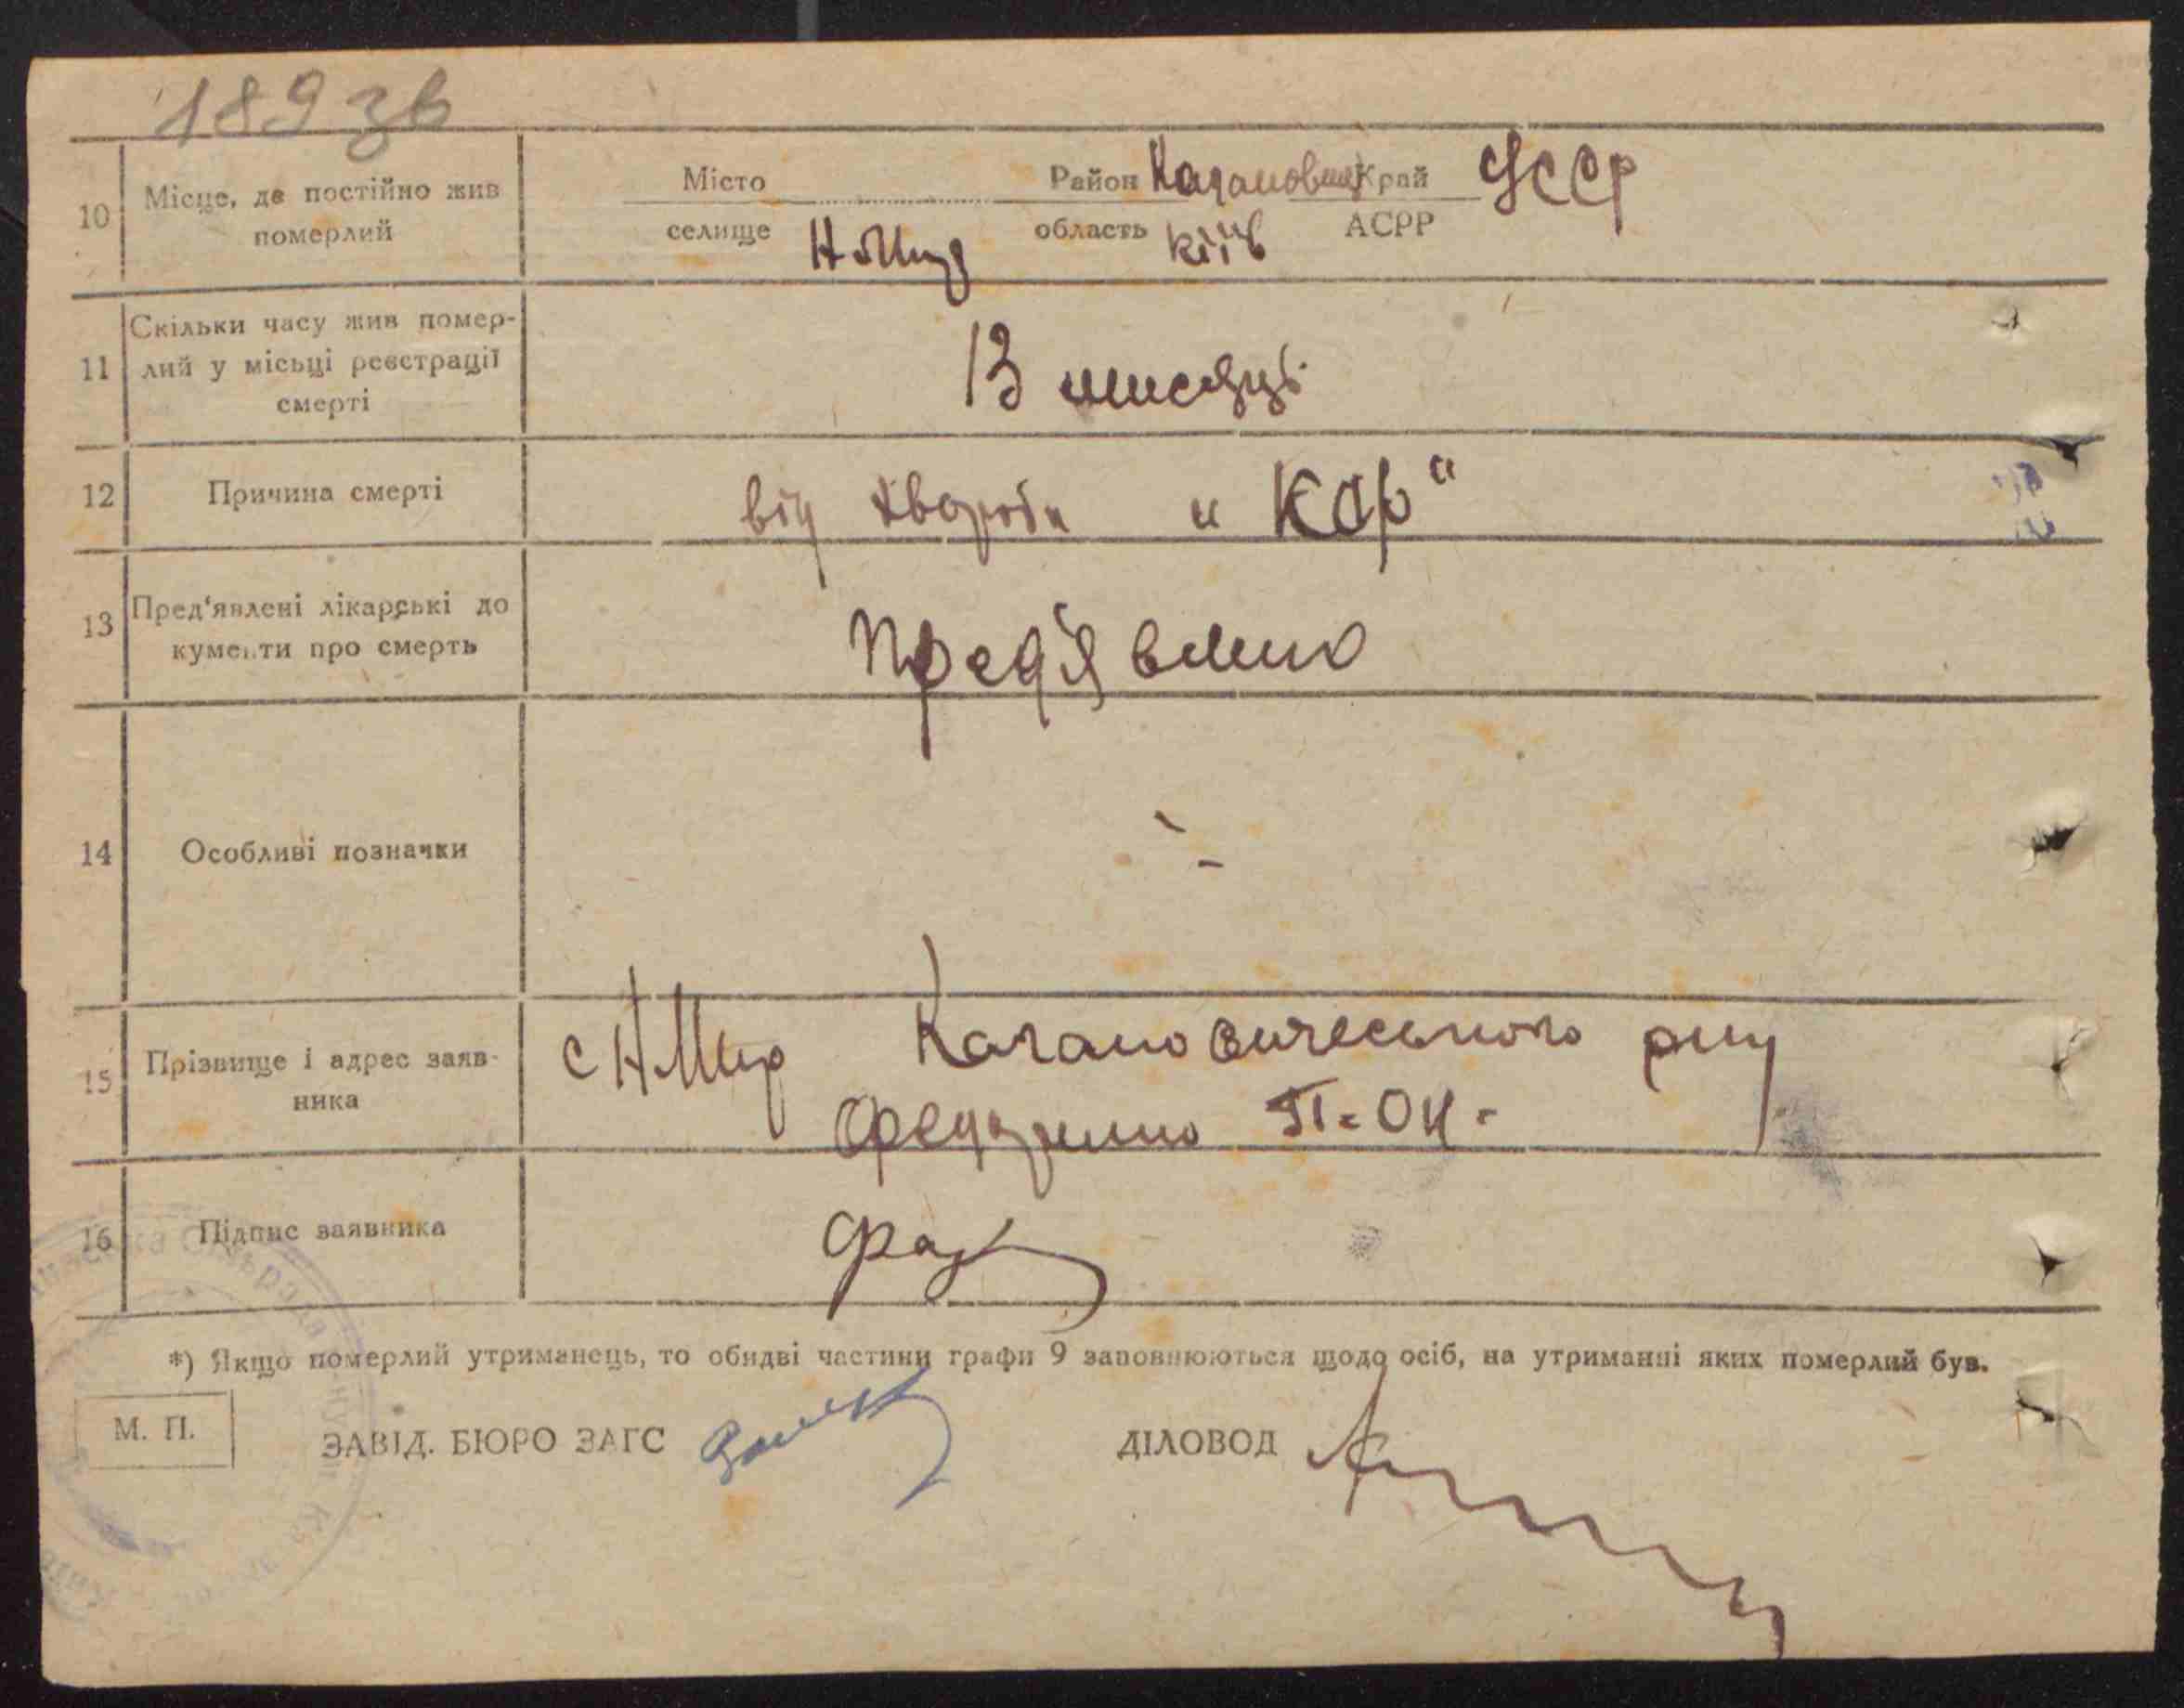 189 зв
10 Місце, де постійно жив померлий
Місто Район Край УССР
селище Н-Мир область Київ АСРР
11 Скільки часу жив помер-
лий у місьці реєстрації
смерті
13 мисяців
12 Причина смерті від хвороби „Кор“
13 Пред'явлені лікарські до
кументи про смерть
Пред'явлено
14 Особливі позначки -
15 Прізвище і адрес заяв-
ника
с Н Мир Кагановичеського рну
16 Підпис заявника
*) Якщо померлий утриманець, то обидві частини графи 9 заповнюються щодо осіб, на утриманні яких померлий був.
М. П. ЗАВІД. БЮРО ЗАГС ДІЛОВОД